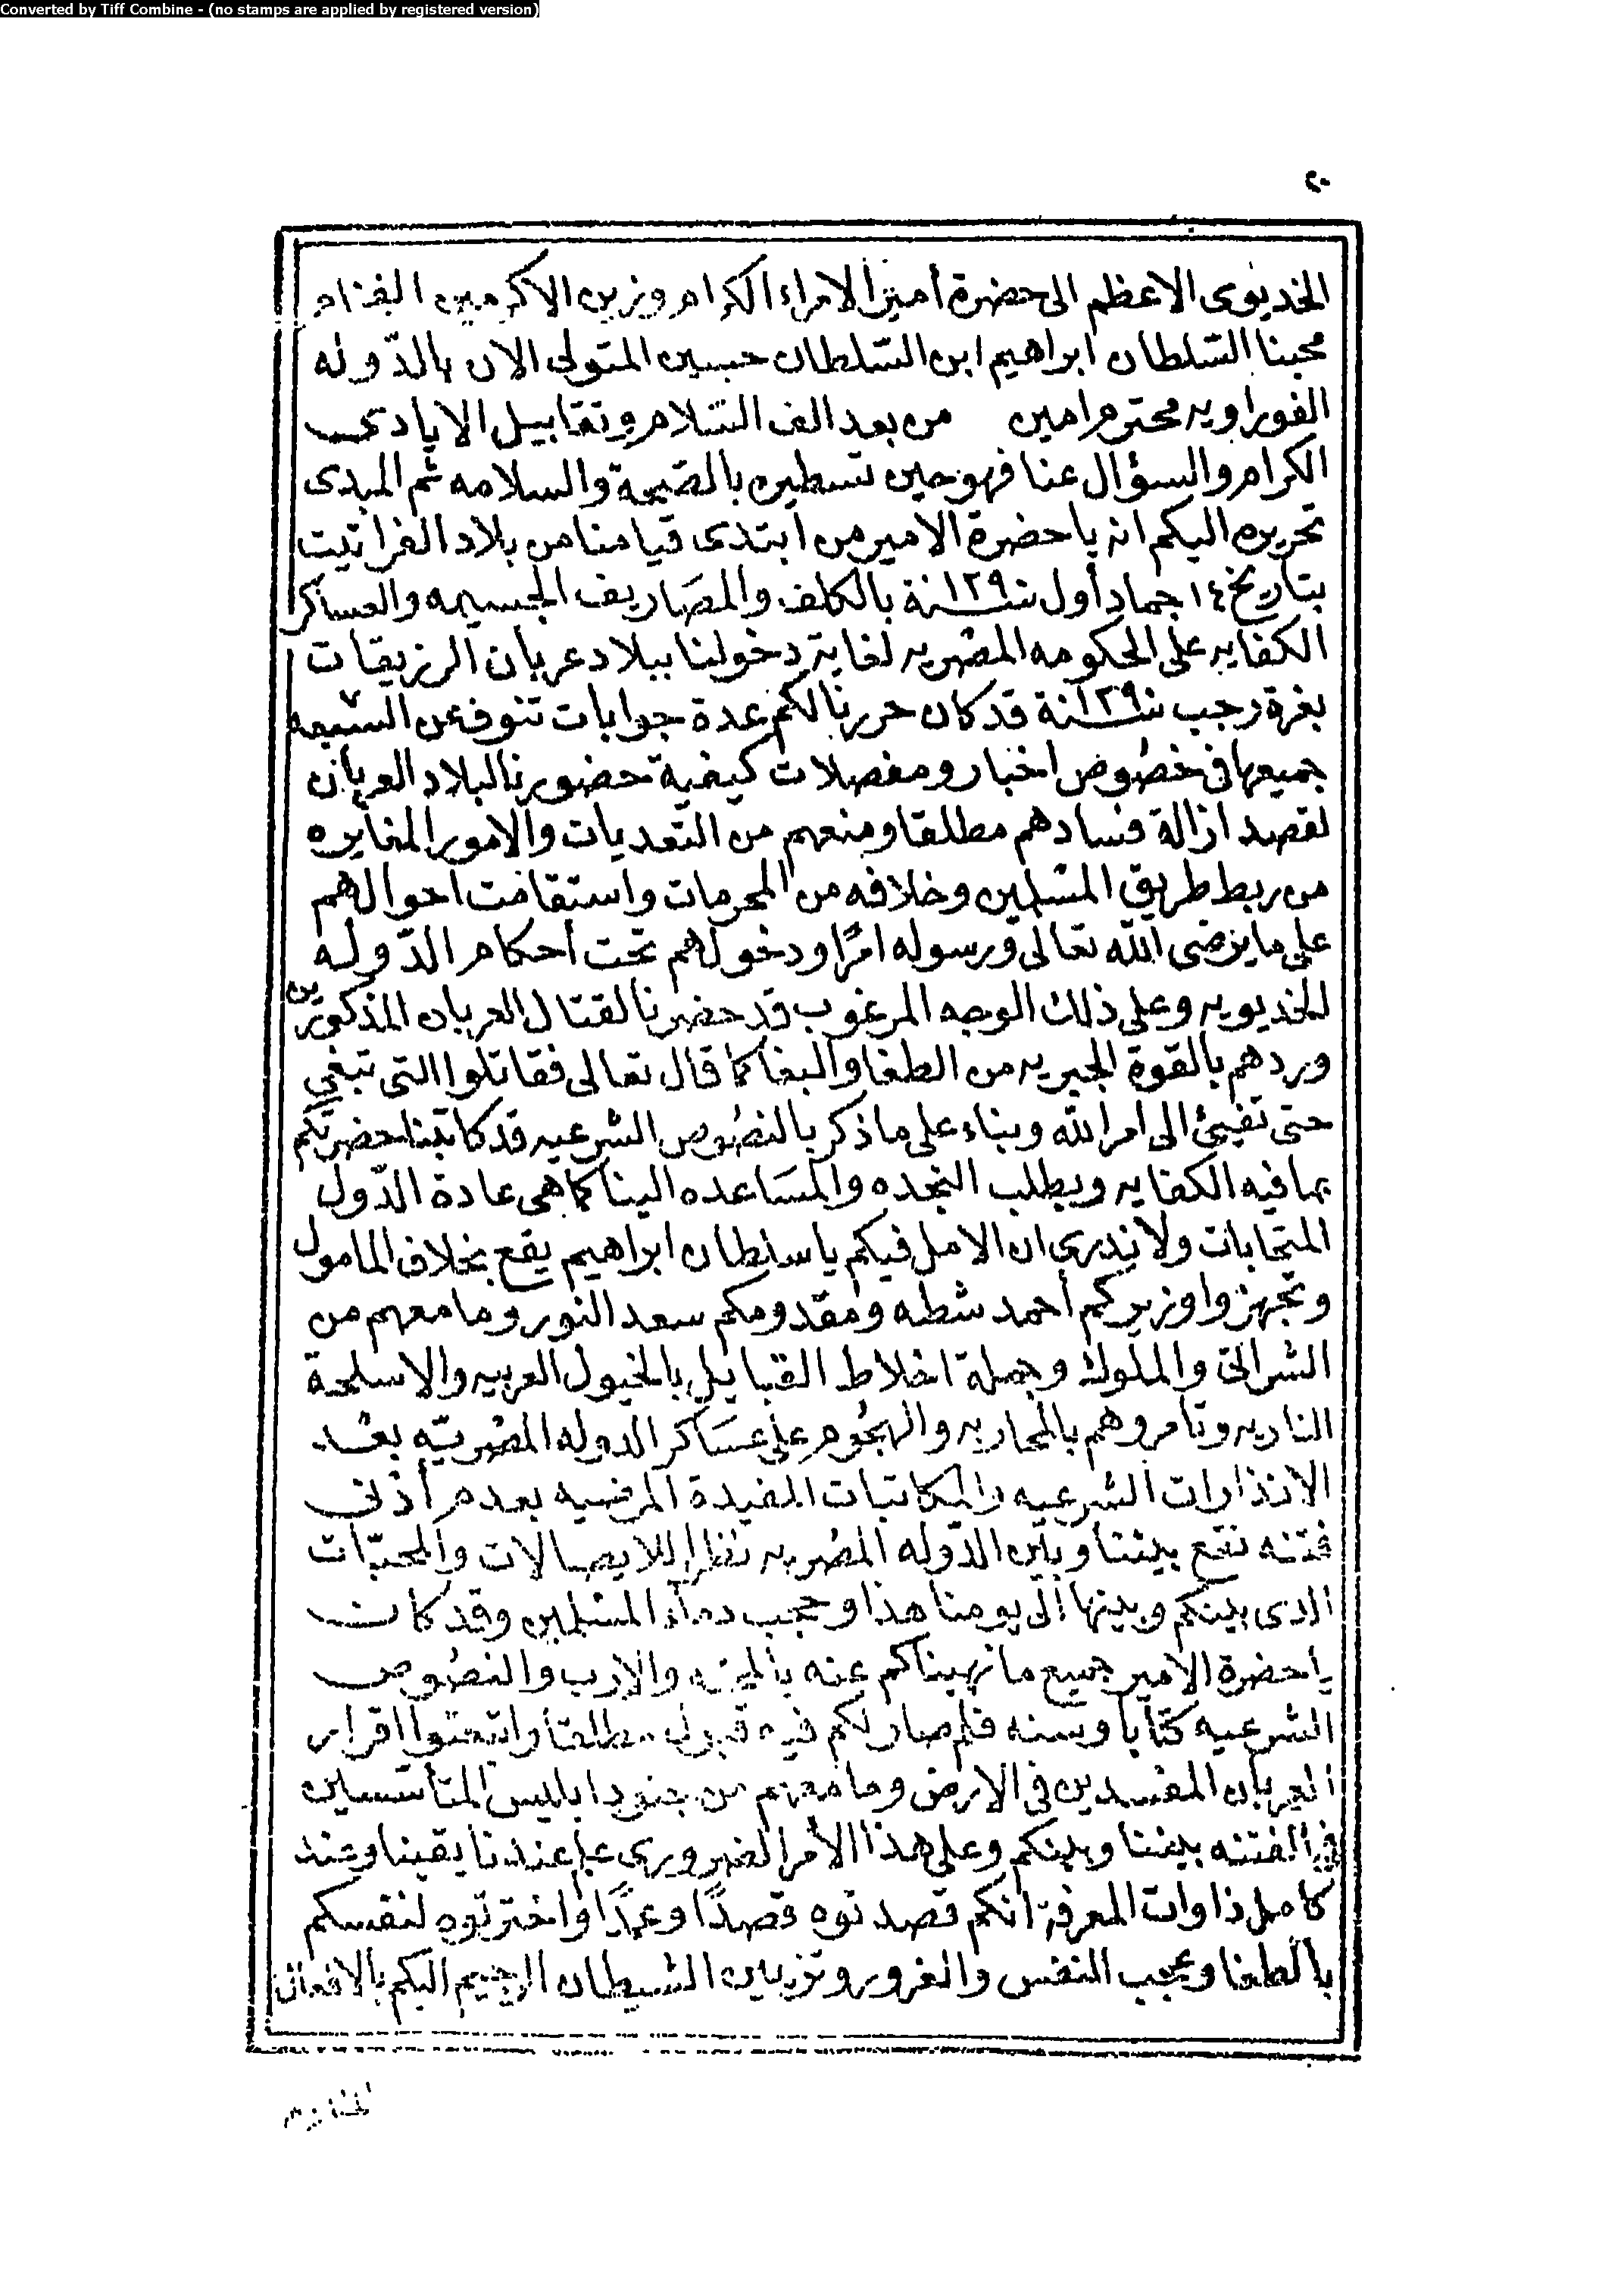 Converted by Tiff Combine - (no stamps are applied by registered version)
٢٠
الخديوى الاعظم الى حضرة أمير الامراء الكرام وزين الاكرمين الفخام
محبنا السّلطان ابراهيم ابن السّلطان حسين المتولى الان بالدّوله
الفوراويه محترم امين من بعد الف السّلام وتقابيل الايادى
الكرام والسؤال عنا فهو حين تسطيره بالصّحة والسلامه ثم المبدى
تحريره اليكم انه يا حضرة الامير من ابتدى قيامنا من بلاد الفراتيت
بتاريخ ١٤ جماد أول سنة ١٢٩ بالكلف والمصَاريف الجسيمه والعساكر
الكفايه على الحكومه المصْريه لغاية دخولنا ببلاد عربان الرزيقات
بغرة رجب سنة ١٢٩ قد كان حررنا لكم عدة جوابات تنوف عن السبعه
جميعها فى خصُوص اخبار ومفصلات كيفية حضورنا لبلاد العربان
لقصد ازالة فسادهم مطلقا ومنعهم من التّعديات والامور المغايره
من ربط طريق المسْلمين وخلافه من المحرمات واستقامت احوالهم
على ما يرضى الله تعالى ورسوله امرًا ودخولهم تحت أحكام الدّوله
الخديويه وعلى ذلك الوجه المرغوب قد حضرنا لقتال العربان المذكورين
وردهم بالقوة الجبريه من الطغا والبغا كما قال تعالى فقاتلوا التى تبغى
حتى تفيئ الى امر الله وبناء على ما ذكر بالنصُوص الشرعيه قد كاتبنا حضرتكم
بما فيه الكفايه وبطلب النجده والمسَاعده الينا كما هى عادة الدّول
المتحابات ولا ندرى ان الامل فيكم يا سلطان ابراهيم يقع بخلاف المامول
وتجهزوا وزيركم أحمد شطه ومقدومكم سعد النور وما معهم من
الشراتى والملوك وجملة اخلاط القبايل بالخيول العربيه والاسلحة
الناريه وتامروهم بالمحاربه والهجُوم على عسَاكر الدوله المصْريّه بعْد
الانذارات الشرعيه والمكاتبات المفيدة المرضيه بعدم أدنى
فتنه تقع بيننا وبين الدّوله المصْريه نظرا للايصالات والمحبّات
الذى بينكم وبينها الى يومنا هذا وحجب دماء المسْلمين وقد كان
يا حضرة الامير جميع ما نهيناكم عنه والادب والنصُوص
الشرعيه كتابا وسنه فلم صار لكم فيه قبول مطلقا واتبعتوا اقرار
العربان المفسدين فى الارض وما معهم من جنود ابليس المتأسّسين
فى الفتنه بيننا وبينكم وعلى هذا الأمر الضرورى عندنا يقينا وعند
كامل ذاوات المعرفة انكم قصدتوه قصدًا وعمدًا واخترتوه لنفسكم
بالطغا وعجب النفس والغرور وتزيين الشيطان الرجيم اليكم بالافعال